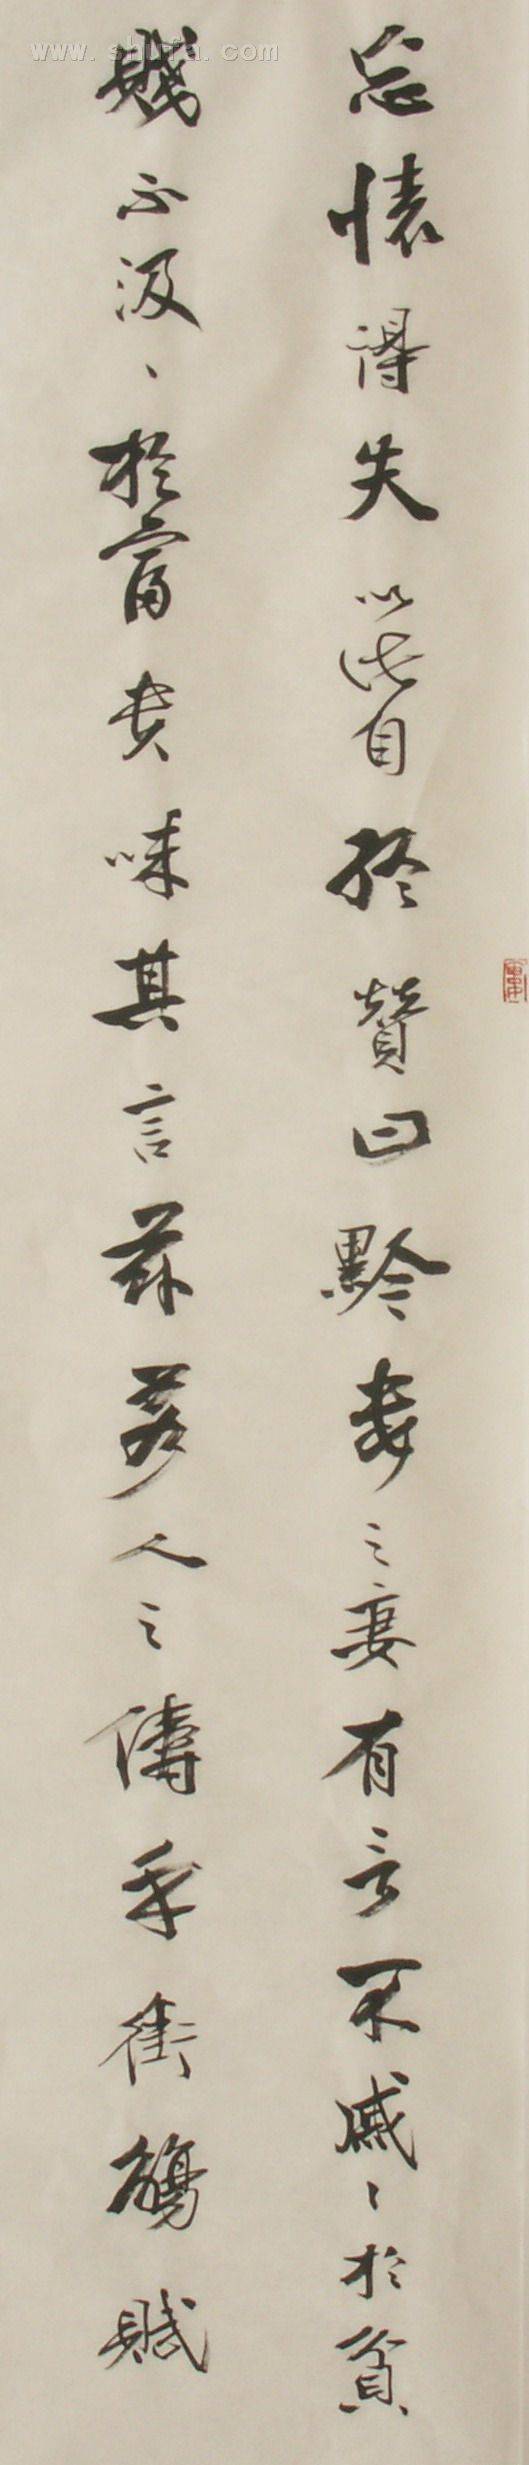 忘懷得失以此自終贊曰黔婁之妻有言不戚〻於貧
賤不汲〻於富貴味其言茲若人之儔乎銜觴賦
www.shufa.com